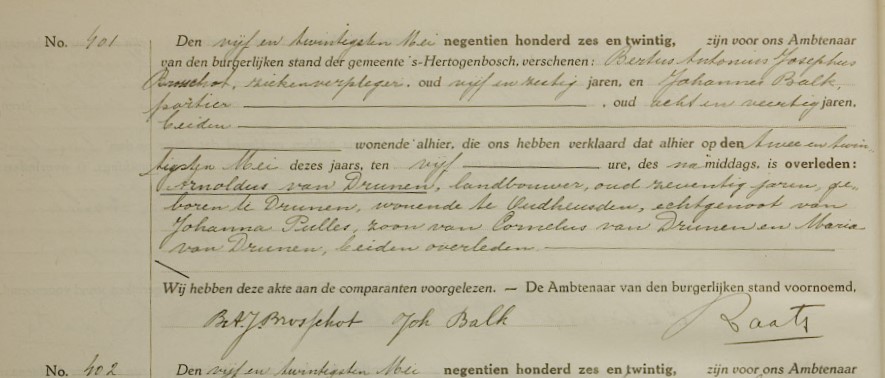 No. 401 Den vijf en twintigsten Mei negentien honderd zes en twintig, zijn voor ons Ambtenaar
van den burgerlijken stand der gemeente 's-Hertogenbosch, verschenen: Bertus Antonius Josephus
Brosschot, ziekenverpleger, oud vijf en zestig jaren, en Johannes Balk,
portier , oud acht en veertig jaren,
beiden
wonende alhier, die ons hebben verklaard dat alhier op den twee en twin-
tigsten Mei dezes jaars, ten vijf ure, des na middags, is overleden:
Arnoldus van Drunen, landbouwer, oud zeventig jaren, ge-
boren te Drunen, wonende te Oudheusden, echtgenoot van
Johanna Pulles, zoon van Cornelus van Drunen en Maria
van Drunen, beiden overleden
Wij hebben deze akte aan de comparanten voorgelezen. — De Ambtenaar van den burgerlijken stand voornoemd,
B.A.J. Brosschot Joh Balk Raats
No. 402 Den vijf en twintigsten Mei negentien honderd zes en twintig, zijn voor ons Ambtenaar